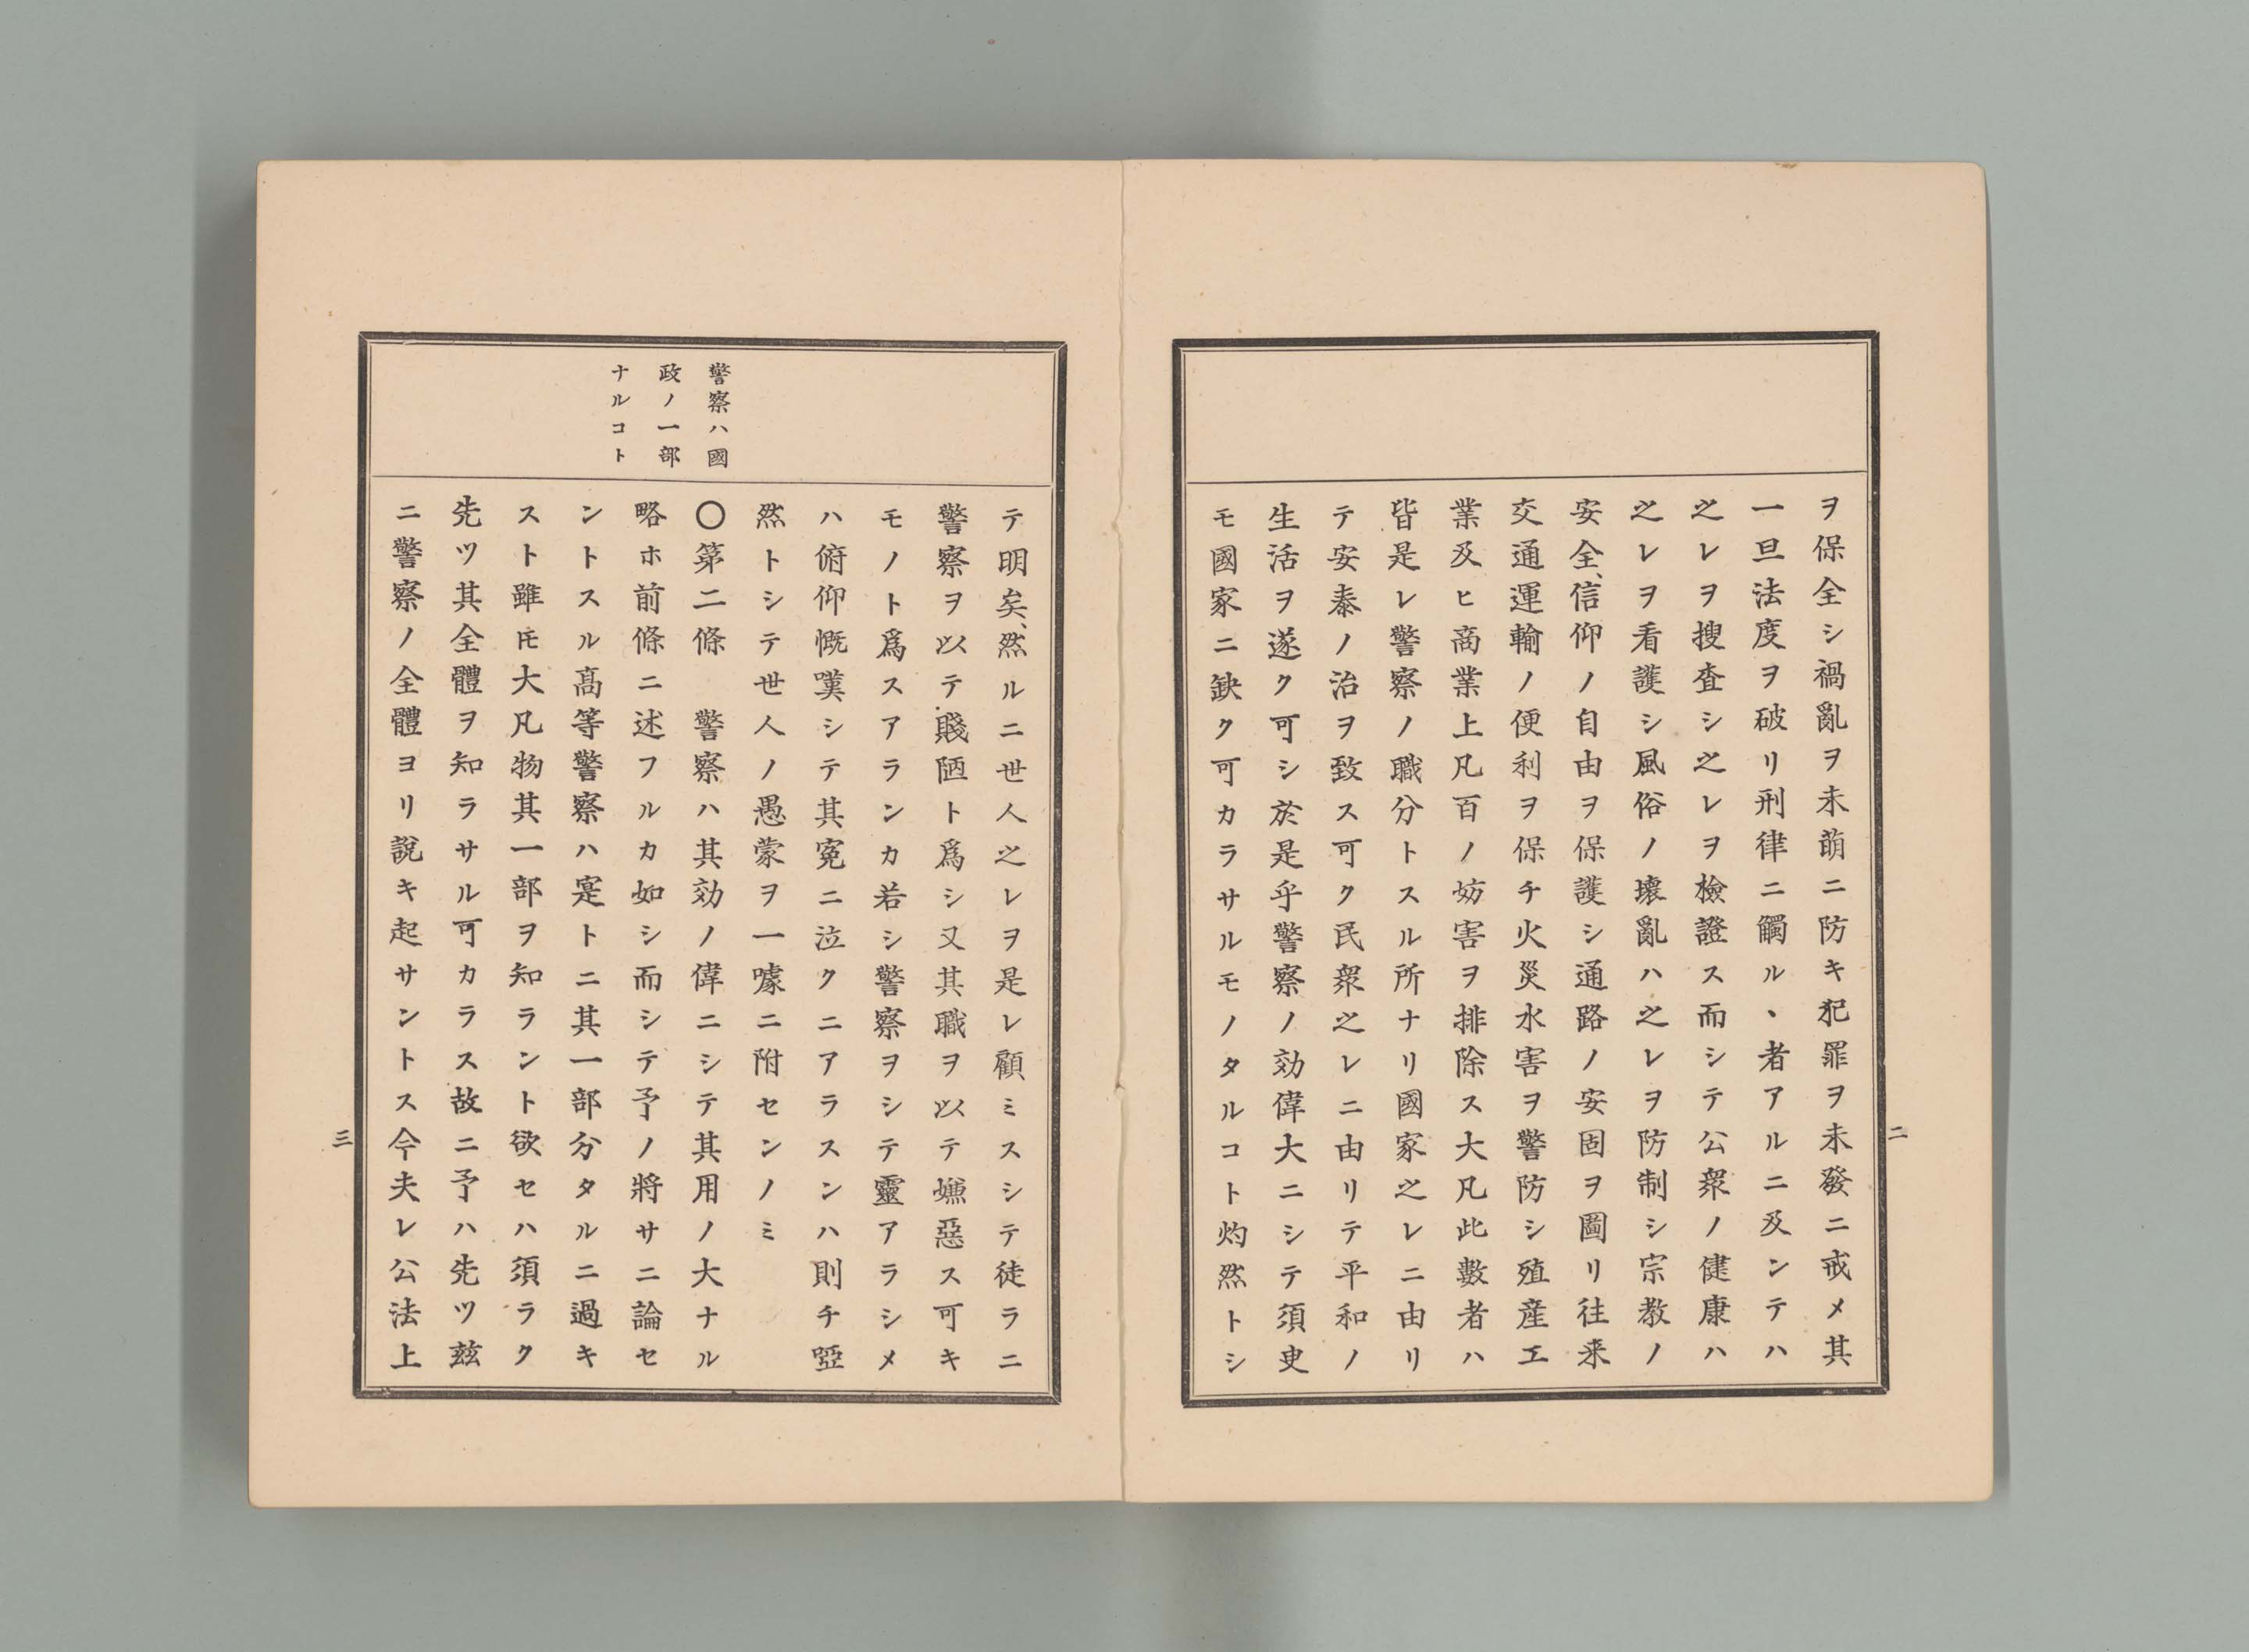 ヲ保全シ禍亂ヲ未萠ニ防キ犯罪ヲ未發ニ戒メ其
一旦法度ヲ破リ刑律ニ觸ル、者アルニ及ンテハ
之レヲ搜査シ之レヲ檢證ス而シテ公衆ノ健康ハ
之レヲ看護シ風俗ノ壞亂ハ之レヲ防制シ宗教ノ
安全、信仰ノ自由ヲ保護シ通路ノ安固ヲ圖リ往来
交通運輸ノ便利ヲ保チ火災水害ヲ警防シ殖産工
業及ヒ商業上凡百ノ妨害ヲ排除ス大凡此數者ハ
皆是レ警察ノ職分トスル所ナリ國家之レニ由リ
テ安泰ノ治ヲ致ス可ク民衆之レニ由リテ平和ノ
生活ヲ遂ク可シ於是乎警察ノ効偉大ニシテ須臾
モ國家ニ缺ク可カラサルモノタルコト灼然トシ
二
テ明矣、然ルニ世人之レヲ是レ顧ミスシテ徒ラニ
警察ヲ以テ賤陋ト爲シ又其職ヲ以テ嫌惡ス可キ
モノト爲スアランカ若シ警察ヲシテ靈アラシメ
ハ俯仰慨嘆シテ其寃ニ泣クニアラスンハ則チ啞
然トシテ世人ノ愚蒙ヲ一噱ニ附センノミ
警察ハ國
政ノ一部
ナルコト
〇第二條　警察ハ其効ノ偉ニシテ其用ノ大ナル
略ホ前條ニ述フルカ如シ而シテ予ノ將サニ論セ
ントスル高等警察ハ寔トニ其一部分タルニ過キ
スト雖𪜈大凡物其一部ヲ知ラント欲セハ須ラク
先ツ其全體ヲ知ラサル可カラス故ニ予ハ先ツ玆
ニ警察ノ全體ヨリ說キ起サントス今夫レ公法上
三